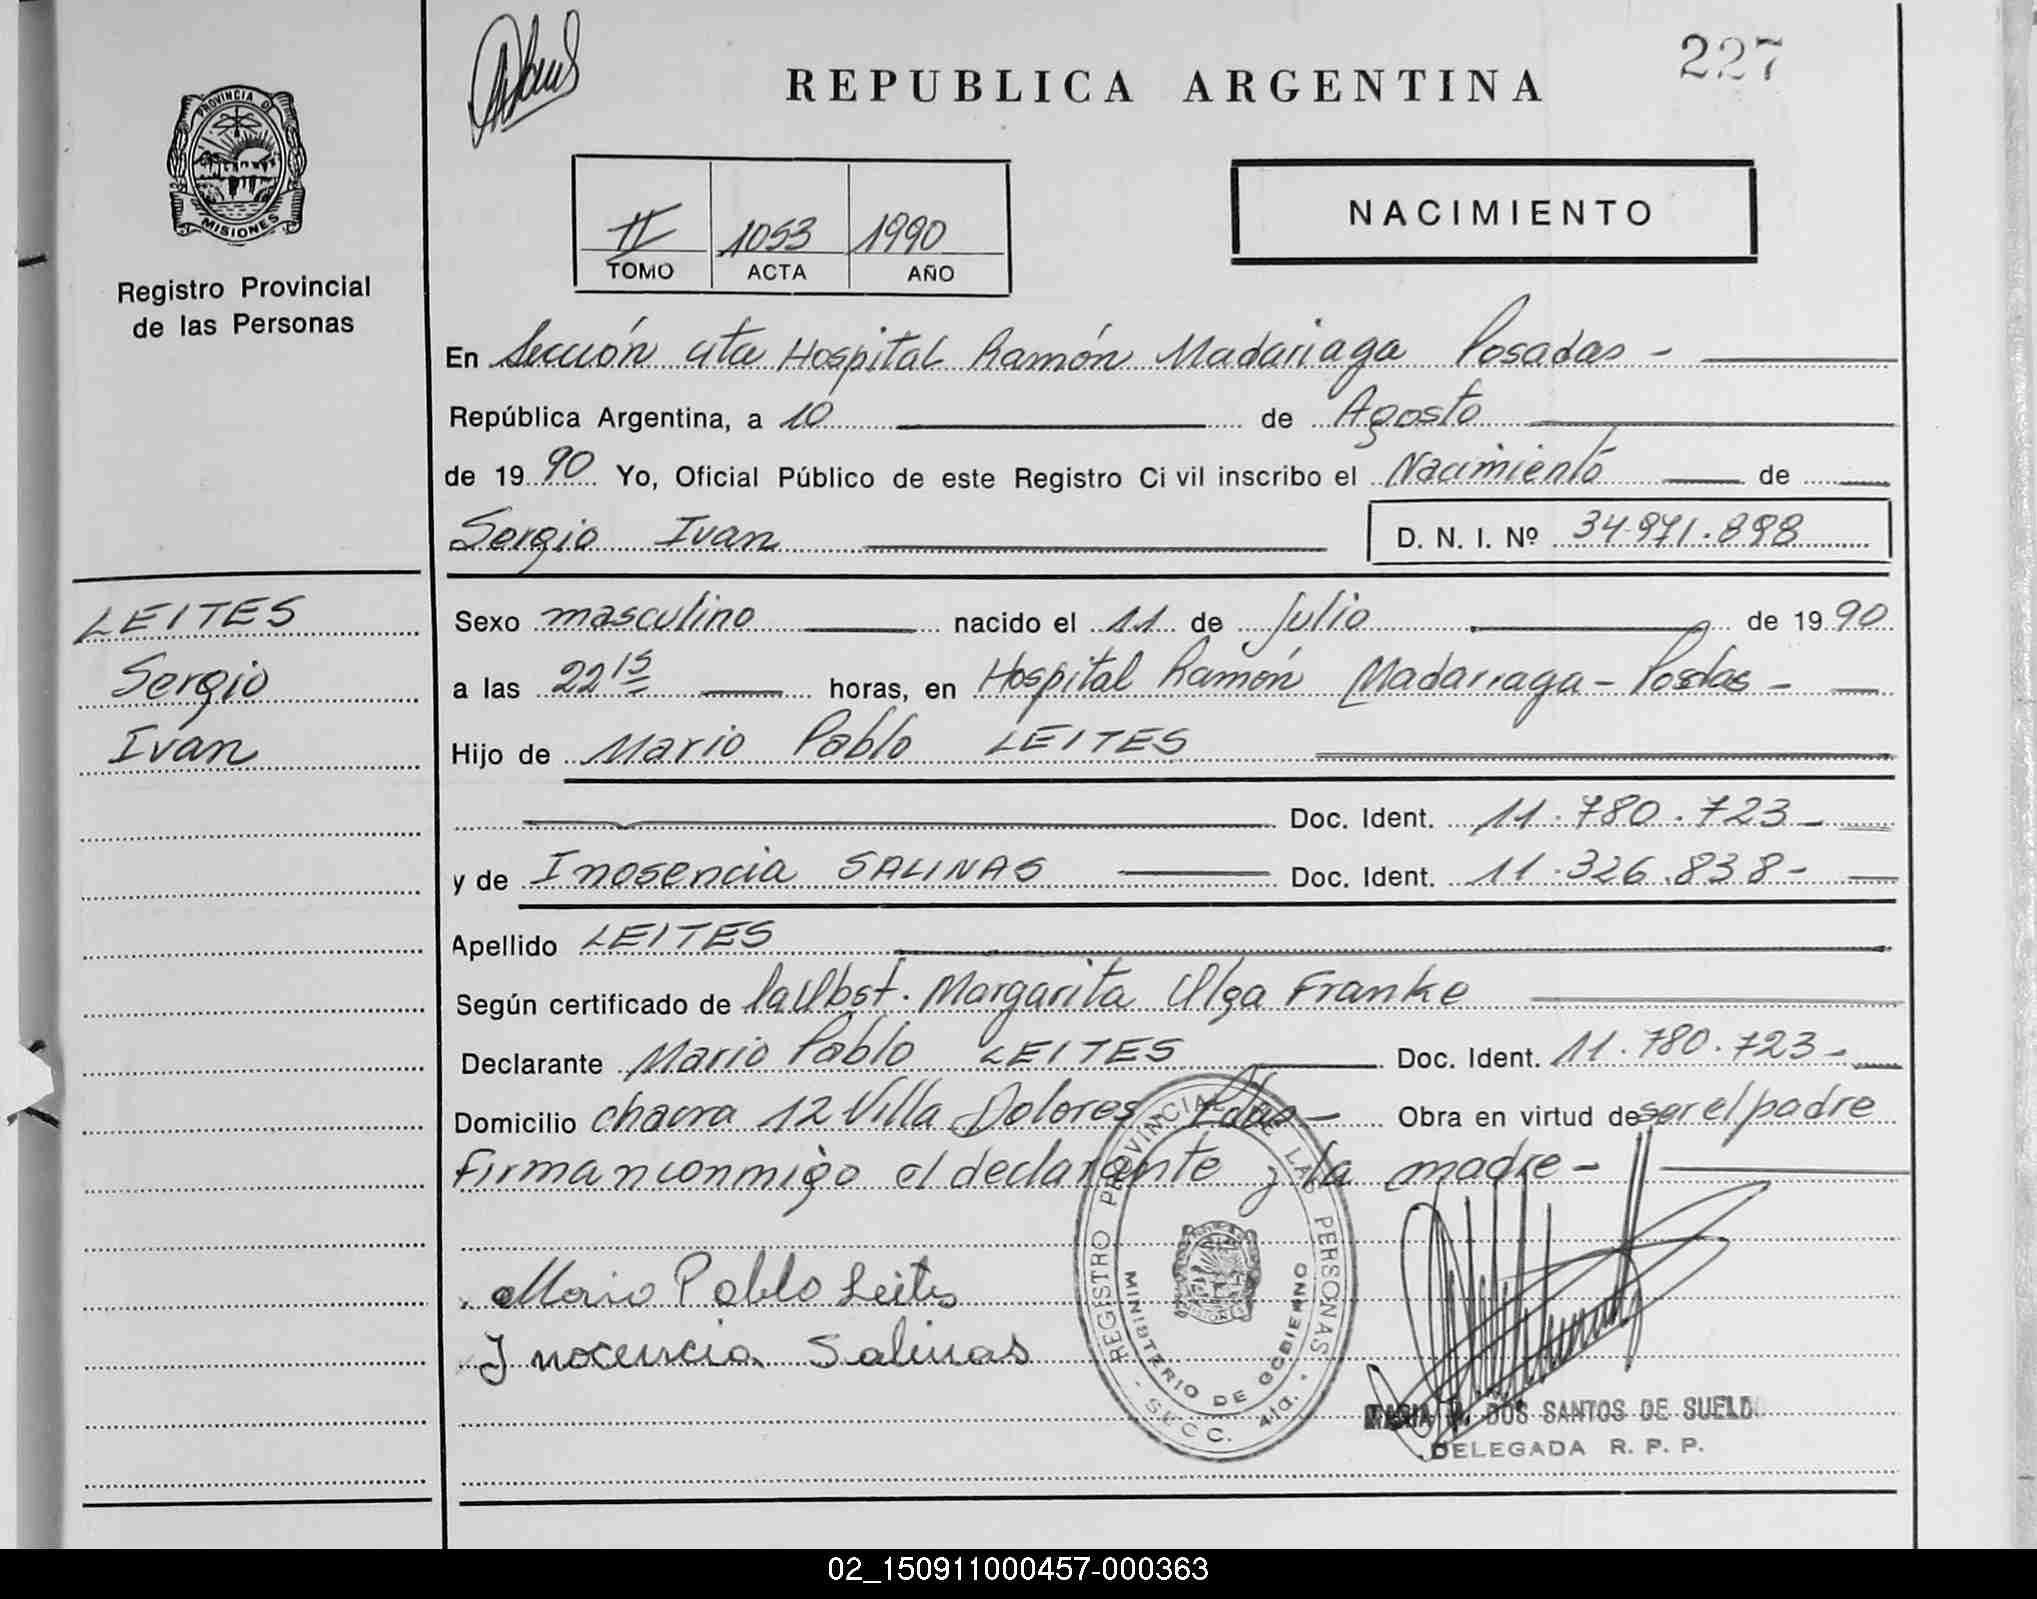 227
REPUBLICA ARGENTINA
PROVINCIA DE
MISIONES
Registro Provincial
de las Personas
NACIMIENTO
II 1053 1990
TOMO ACTA AÑO
En Sección 4ta Hospital Ramón Madariaga Posadas -
República Argentina, a 10 de Agosto
de 1990 Yo, Oficial Público de este Registro Civil inscribo el Nacimiento de
Sergio Ivan D. N. I. Nº 34.971.898
LEITES
Sergio
Ivan
Sexo masculino nacido el 11 de Julio de 1990
a las 22 15 horas, en Hospital Ramón Madariaga - Posdas -
Hijo de Mario Pablo LEITES
Doc. Ident. 11.780.723 -
y de Inosencia SALINAS Doc. Ident. 11.326.838 -
Apellido LEITES
Según certificado de la Obst. Margarita Olga Franke
Declarante Mario Pablo LEITES Doc. Ident. 11.780.723 -
Domicilio chacra 12 Villa Dolores Pdas - Obra en virtud de ser el padre
Firman conmigo el declarante y la madre -
Mario Pablo Leites
Inocencia Salinas
REGISTRO PROVINCIAL DE LAS PERSONAS
MINISTERIO DE GOBIERNO
SECC. 4ta.
DOS SANTOS DE SUELDO
DELEGADA R. P. P.
02_150911000457-000363